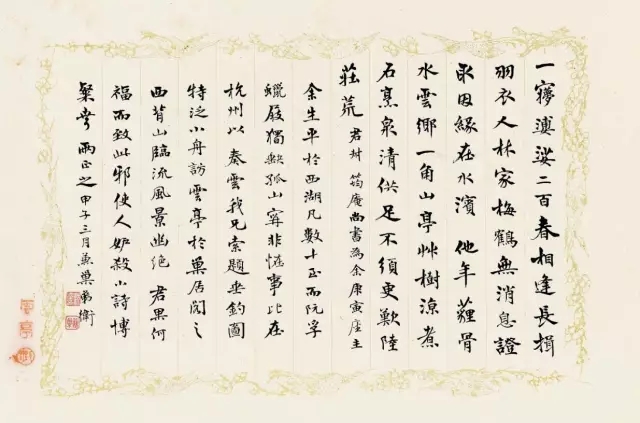 一夢二百春相逢長揖
羽衣人林家梅鶴無消息證
取因緣在水濱他年薶骨
水雲鄉一角山亭艸樹涼煮
石烹泉清供足不須更歎陸
莊荒 君坿筠庵尚書為余庚寅座主
余生平於西湖凡數十至而阮孚
蠟屐獨缺孤山寧非事比在
杭州以秦雲我兄索題垂釣圖
特泛小舟訪雲亭於巢居閣之
西背山臨流風景幽絕 君果何
福而致此邪使人妒殺小詩博
粲 兩正之 甲子三月巢弟衛